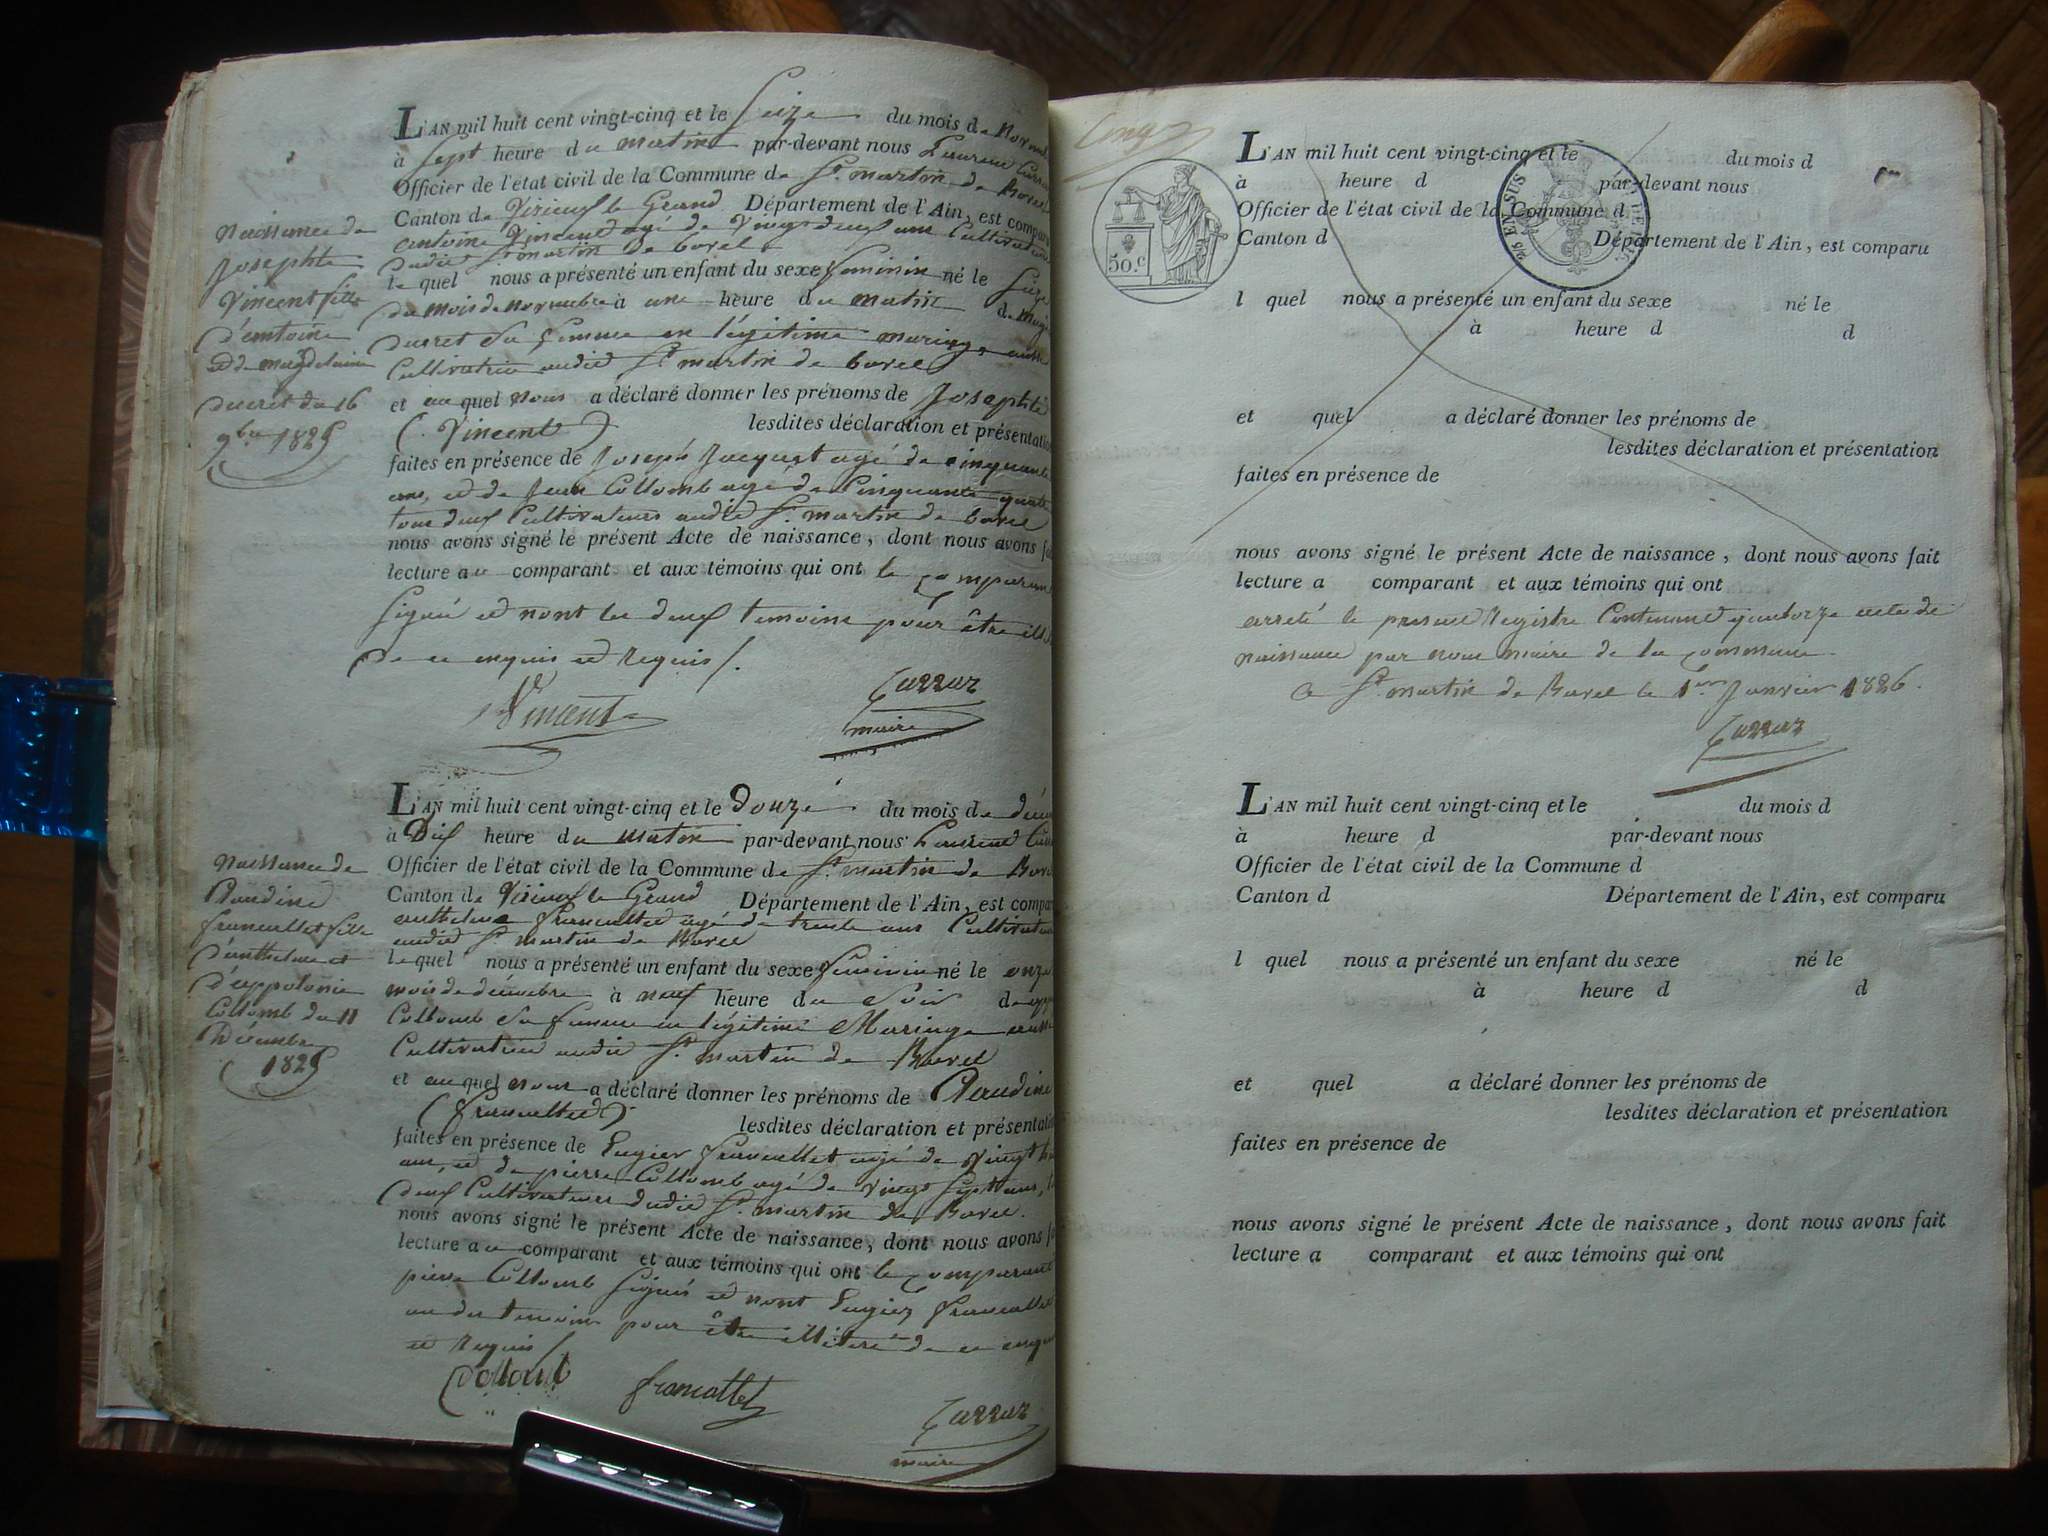 L'AN mil huit cent vingt-cinq et le Seize du mois de
à Sept heure du matin par-devant nous
Officier de l'état civil de la Commune de St. martin de Bavel
Canton de Virieux le Grand Département de l'Ain, est comparu
antoine Vincent agé de Vingt deux ans Cultivateur
audit St martin de bavel
le quel nous a présenté un enfant du sexe feminin né le Seize
du mois de novembre à une heure du matin de
ducret Sa femme en légitime mariage aussi
Cultivatrice audit St martin de bavel
et au quel nous a déclaré donner les prénoms de Josephte
(Vincent) lesdites déclaration et présentation
faites en présence de Joseph Jacquet agé de cinquante
ans, et de Jean Collomb agé de Cinquante quatre
tous deux Cultivateurs audit St. martin de bavel
nous avons signé le présent Acte de naissance, dont nous avons
lecture au comparant et aux témoins qui ont le comparant
Signé et nont les deux temoins pour être
de ce enquis et requis /.
Vincent
maire
Naissance de
Josephte
Vincent fille
d'antoine
et de magdelaine
ducret du 16
9bre 1825
L'AN mil huit cent vingt-cinq et le Douze du mois de
à Dix heure du matin par-devant nous Laurent
Officier de l'état civil de la Commune de St. martin de Bavel
Canton de Virieux le Grand Département de l'Ain, est comparu
anthelme francallet agé de trente ans Cultivateur
audit St martin de Bavel
le quel nous a présenté un enfant du sexe feminin né le onze
mois de décembre à neuf heure du Soir
Collomb Sa femme en légitime Marriage aussi
Cultivatrice audit St martin de Bavel
et au quel nous a déclaré donner les prénoms de Claudine
(francallet) lesdites déclaration et présentation
faites en présence de francallet agé de vingt
ans, et de pierre Collomb agé de vingt Sept ans,
deux Cultivateurs dudit St. martin de Bavel.
nous avons signé le présent Acte de naissance, dont nous avons
lecture au comparant et aux témoins qui ont le comparant
pierre Collomb Signés et nont francallet
un des temoins pour être illiteré de ce
et requis /
Collomb francallet
maire
Naissance de
Claudine
francallet fille
d'anthelme et
d'appolonie
Collomb du 11
Décembre
1825
L'AN mil huit cent vingt-cinq et le du mois d
à heure d par-devant nous
Officier de l'état civil de la Commune d
Canton d Département de l'Ain, est comparu
50.c
l quel nous a présenté un enfant du sexe né le
à heure d d
et quel a déclaré donner les prénoms de
lesdites déclaration et présentation
faites en présence de
nous avons signé le présent Acte de naissance, dont nous avons fait
lecture a comparant et aux témoins qui ont
arreté le present Registre Contenant quatorze actes de
naissance par nous maire de la commune
a St. martin de Bavel le 1er Janvier 1826.
L'AN mil huit cent vingt-cinq et le du mois d
à heure d par-devant nous
Officier de l'état civil de la Commune d
Canton d Département de l'Ain, est comparu
l quel nous a présenté un enfant du sexe né le
à heure d d
et quel a déclaré donner les prénoms de
lesdites déclaration et présentation
faites en présence de
nous avons signé le présent Acte de naissance, dont nous avons fait
lecture a comparant et aux témoins qui ont